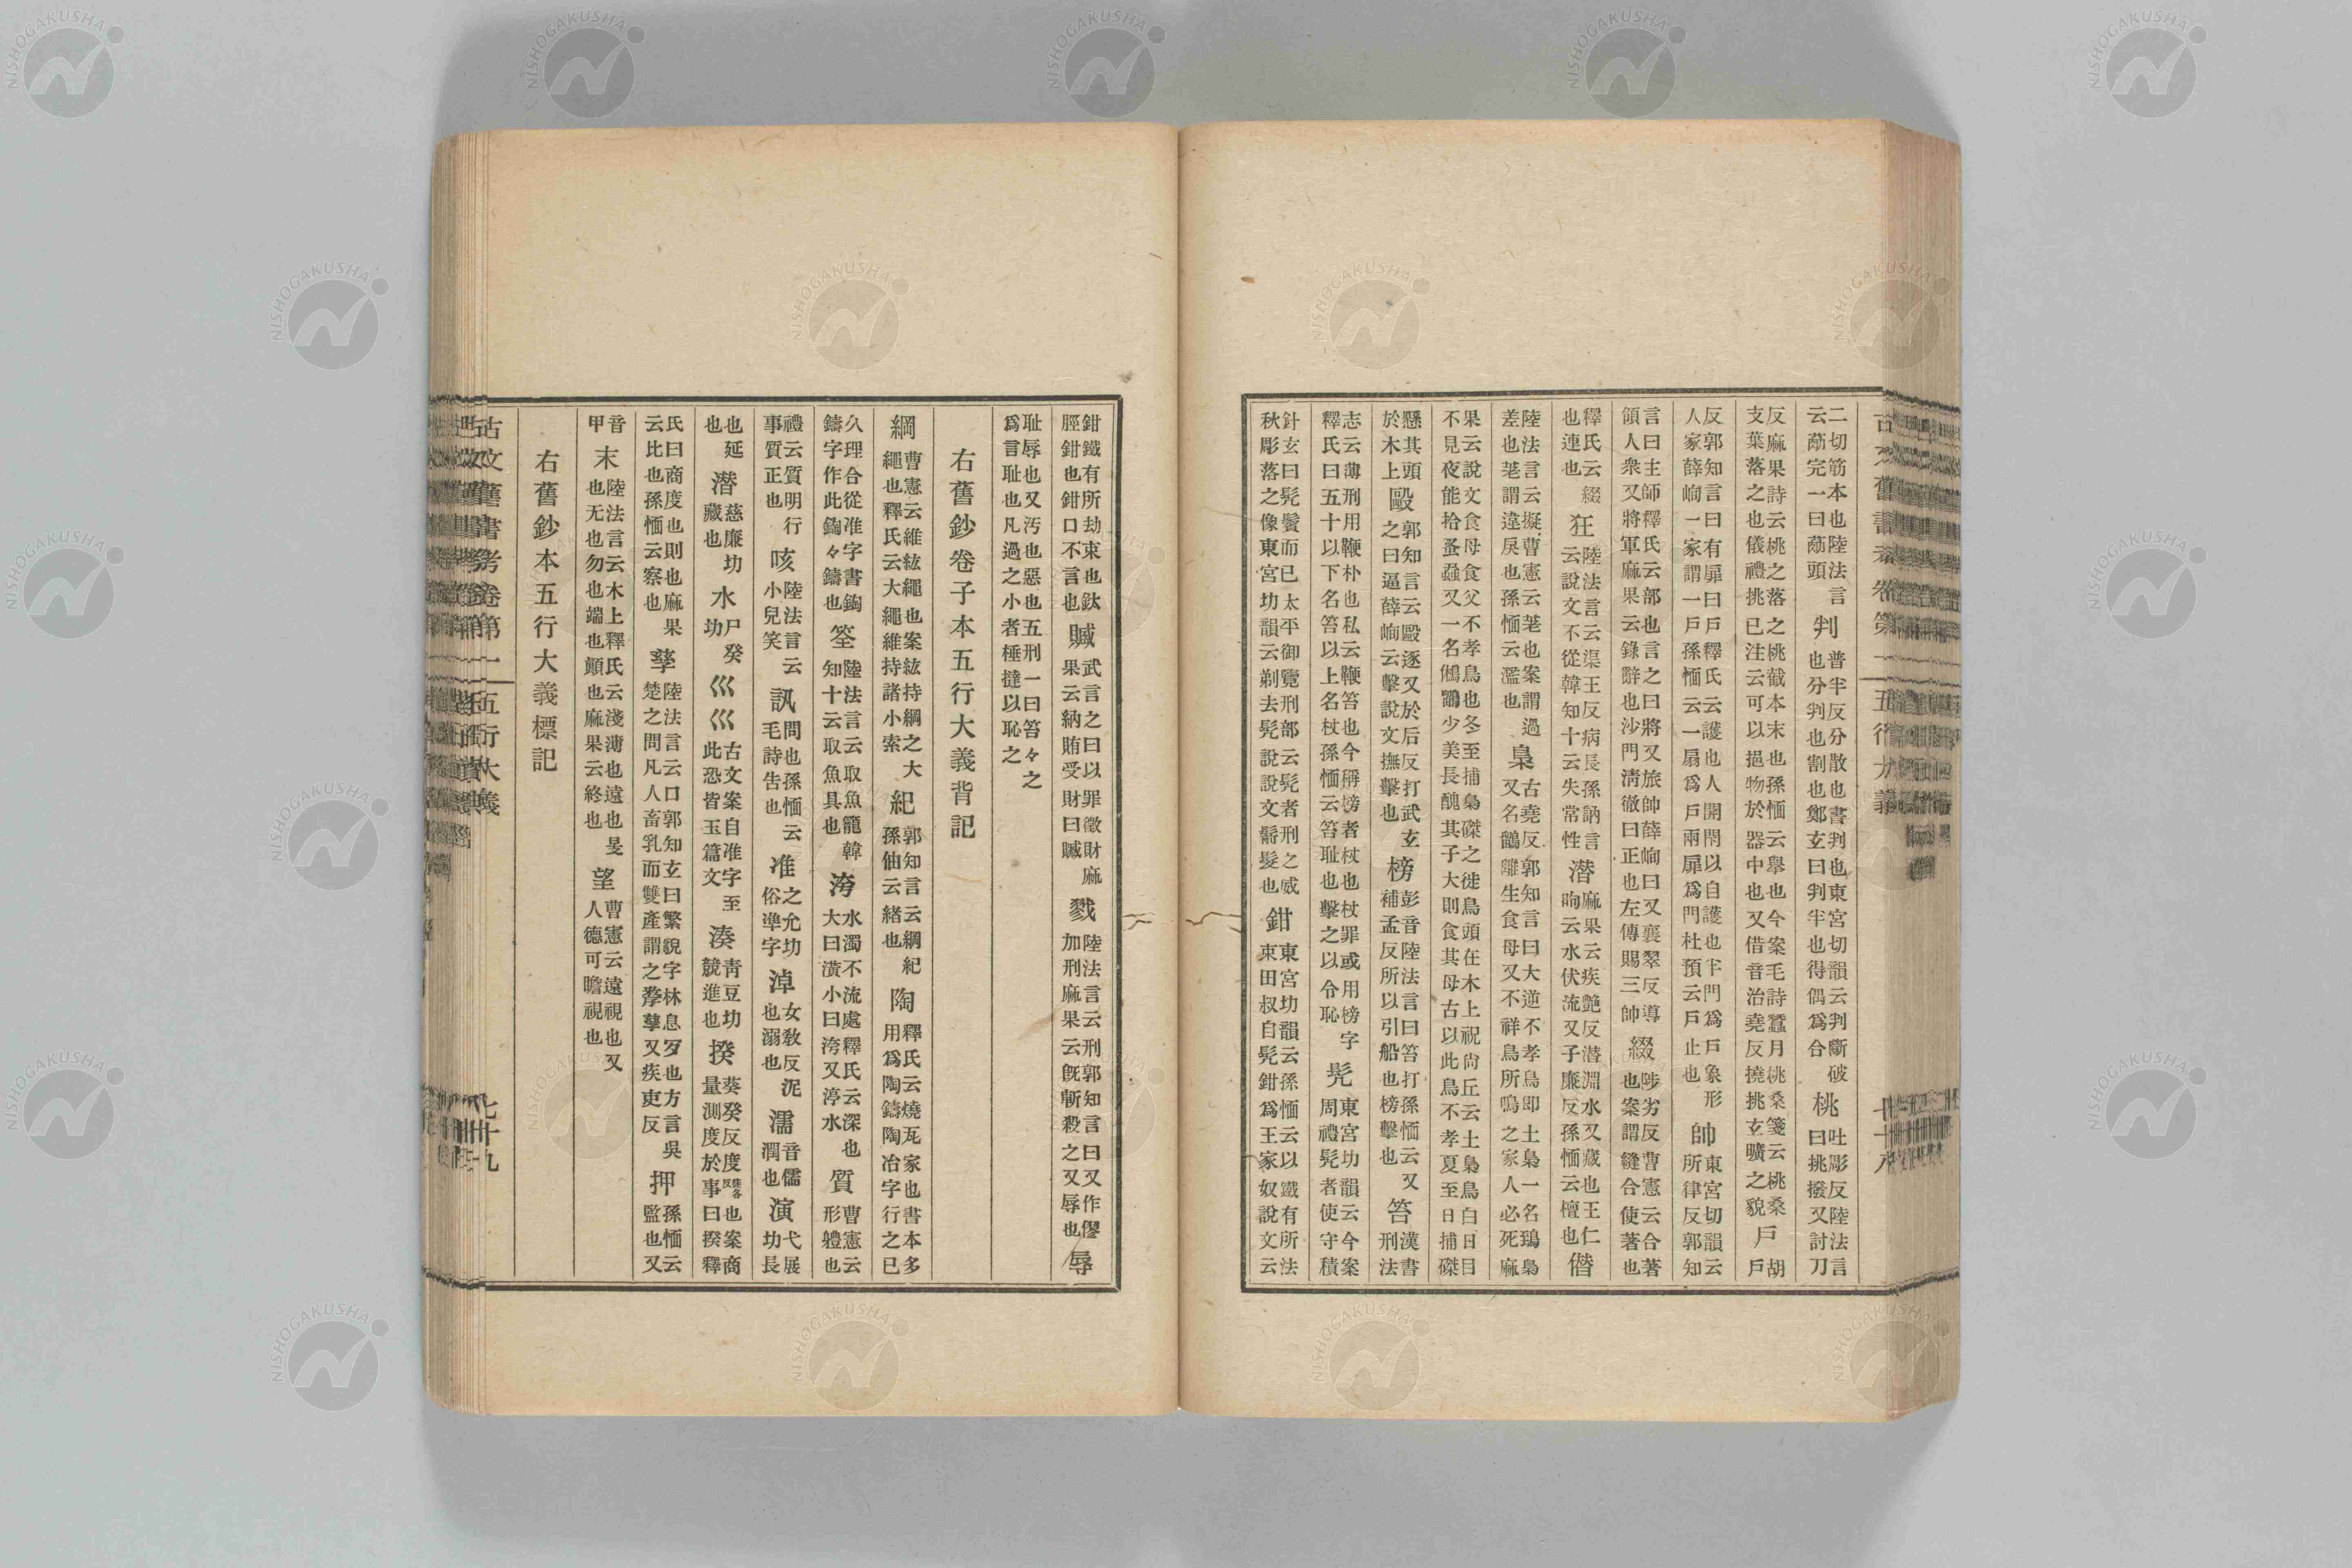 二切筋本也陸法言
云蒵完一曰蒵頭
判
普半反分散也書判也東宮切韻云判斷破
也分判也割也鄭玄曰判半也得偶爲合
桃
吐彫反陸法言
曰挑撥又討刀
反麻果詩云桃之落之桃截本末也孫愐云擧也今案毛詩蠶月桃桑箋云桃桑
支葉落之也儀禮挑已注云可以挹物於器中也又借音治堯反撓挑玄曠之貌
戸
胡
戸
反郭知言曰有扉曰戸釋氏云護也人開閇以自護也半門爲戸象形
人家薛峋一家謂一戸孫愐云一扇爲戸兩扉爲門杜預云戸止也
帥
東宮切韻云
所律反郭知
言曰主師釋氏云部也言之曰將又旅帥薛峋曰又襄翠反導
領人衆又將軍麻果云錄辭也沙門淸徹曰正也左傳賜三帥
綴
陟劣反曹憲云合著
也案謂縫合使著也
釋氏云綴
也連也
狂
陸法言云渠王反病長孫訥言
云說文不從韓知十云失常性
潜
麻果云疾艶反潜淵水又藏也王仁
昫云水伏流又子廉反孫愐云檀也
僭
陸法言云擬曹憲云荖也案謂過
差也荖謂違戾也孫愐云濫也
梟
古堯反郭知言曰大逆不孝鳥即土梟一名鵄梟
又名鶹離生食母又不祥鳥所鳴之家人必死麻
果云說文食母食父不孝鳥也冬至捕梟磔之徙鳥頭在木上祝尙丘云土梟鳥白日目
不見夜能拾蚤蝨又一名鵂鶹少美長醜其子大則食其母古以此鳥不孝夏至日捕磔
懸其頭
於木上
毆
郭知言云毆逐又於后反打武玄
之曰逼薛峋云擊說文撫擊也
榜
彭音陸法言曰笞打孫愐云又
補孟反所以引船也榜擊也
笞
漢書
刑法
志云薄刑用鞭朴也私云鞭笞也今稱搒者杖也杖罪或用榜字
釋氏曰五十以下名笞以上名杖孫愐云笞耻也擊之以令恥
髠
東宮切韻云今案
周禮髠者使守積
針玄曰髠鬢而已太平御覽刑部云髠者刑之威
秋彫落之像東宮切韻云剃去髠說說文鬀髮也
鉗
東宮功韻云孫愐云以鐵有所法
束田叔自髠鉗爲王家奴說文云
古文舊書考卷第一 五行大義 七十八
鉗鐵有所劫束也釱
脛鉗也鉗口不言也
贓
武言之曰以罪徵財麻
果云納賄受財曰贓
戮
陸法言云刑郭知言曰又作僇
加刑麻果云旣斬殺之又辱也
辱
耻辱也又汚也惡也五刑一曰笞々之
爲言耻也凡過之小者捶撻以恥之
右舊鈔卷子本五行大義背記
綱
曹憲云維紘繩也案紘持綱之大
繩也釋氏云大繩維持諸小索
紀
郭知言云綱紀
孫伷云緒也
陶
釋氏云燒瓦家也書本多
用爲陶鑄陶冶字行之已
久理合從准字書鋾
鑄字作此鋾々鑄也
筌
陸法言云取魚籠韓
知十云取魚具也
洿
水濁不流處釋氏云深也
大曰潢小曰洿又渟水
質
曹憲云
形軆也
禮云質明行
事質正也
咳
陸法言云
小兒笑
訊
問也孫愐云
毛詩吿也
准
之允功
俗準字
淖
女敎反泥
也溺也
濡
音儒
潤也
演
弋展
功長
也延
也
潜
慈廉功
藏也
水
尸癸
功
巛巛
古文案自准字至
此恐皆玉篇文
湊
靑豆功
競進也
揆
葵癸反度徒各反也案商
量測度於事曰揆釋
氏曰商度也則也麻果
云比也孫愐云察也
孳
陸法言云口郭知玄曰繁貌字林息歹也方言吳
楚之間凡人畜乳而雙產謂之孳孳又疾吏反
押
孫愐云
監也又
音
甲
末
陸法言云木上釋氏云淺薄也遠也旻
也无也勿也端也顛也麻果云終也
望
曹憲云遠視也又
人德可瞻視也
右舊鈔本五行大義標記
古文舊書考卷第一 五行大義 七十九